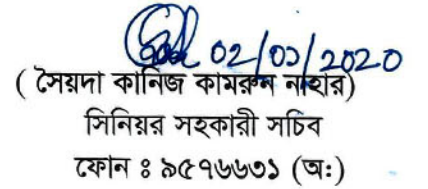 02/03/2020
( সৈয়দা কানিজ কামরুন নাহার)
সিনিয়র সহকারী সচিব
ফোন ঃ ৯৫৭৬৬৩১ (অ:)